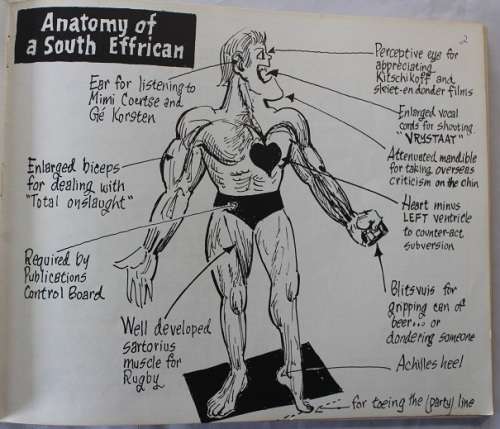 Anatomy of
a South Effrican
2
Ear for listening to
Mimi Coertse and
Gé Korsten
Perceptive eye for
appreciating
Kitschikoff and
skiet-en donder films
Enlarged vocal
cords for shouting
"VRYSTAAT"
Attenuated mandible
for taking overseas
criticism on the chin
Enlarged biceps
for dealing with
"Total onslaught"
Heart minus
LEFT ventricle
to counter-act
subversion
Required by
Publications
Control Board
Blitsvuis for
gripping can of
beer... or
dondering someone
Well developed
sartorius
muscle for
Rugby
Achilles heel
for toeing the (party) line